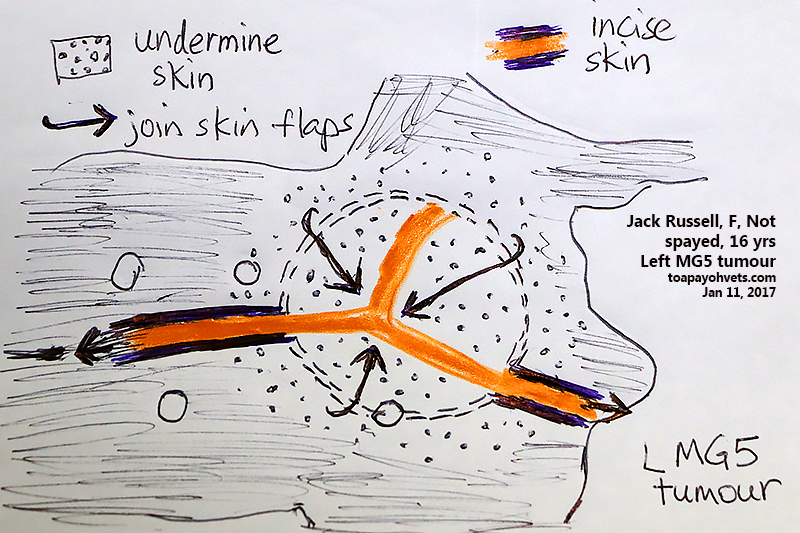 undermine
skin
join skin flaps
incise
skin
Jack Russell, F, Not
spayed, 16 yrs
Left MG5 tumour
toapayohvets.com
Jan 11, 2017
L MG5
tumour